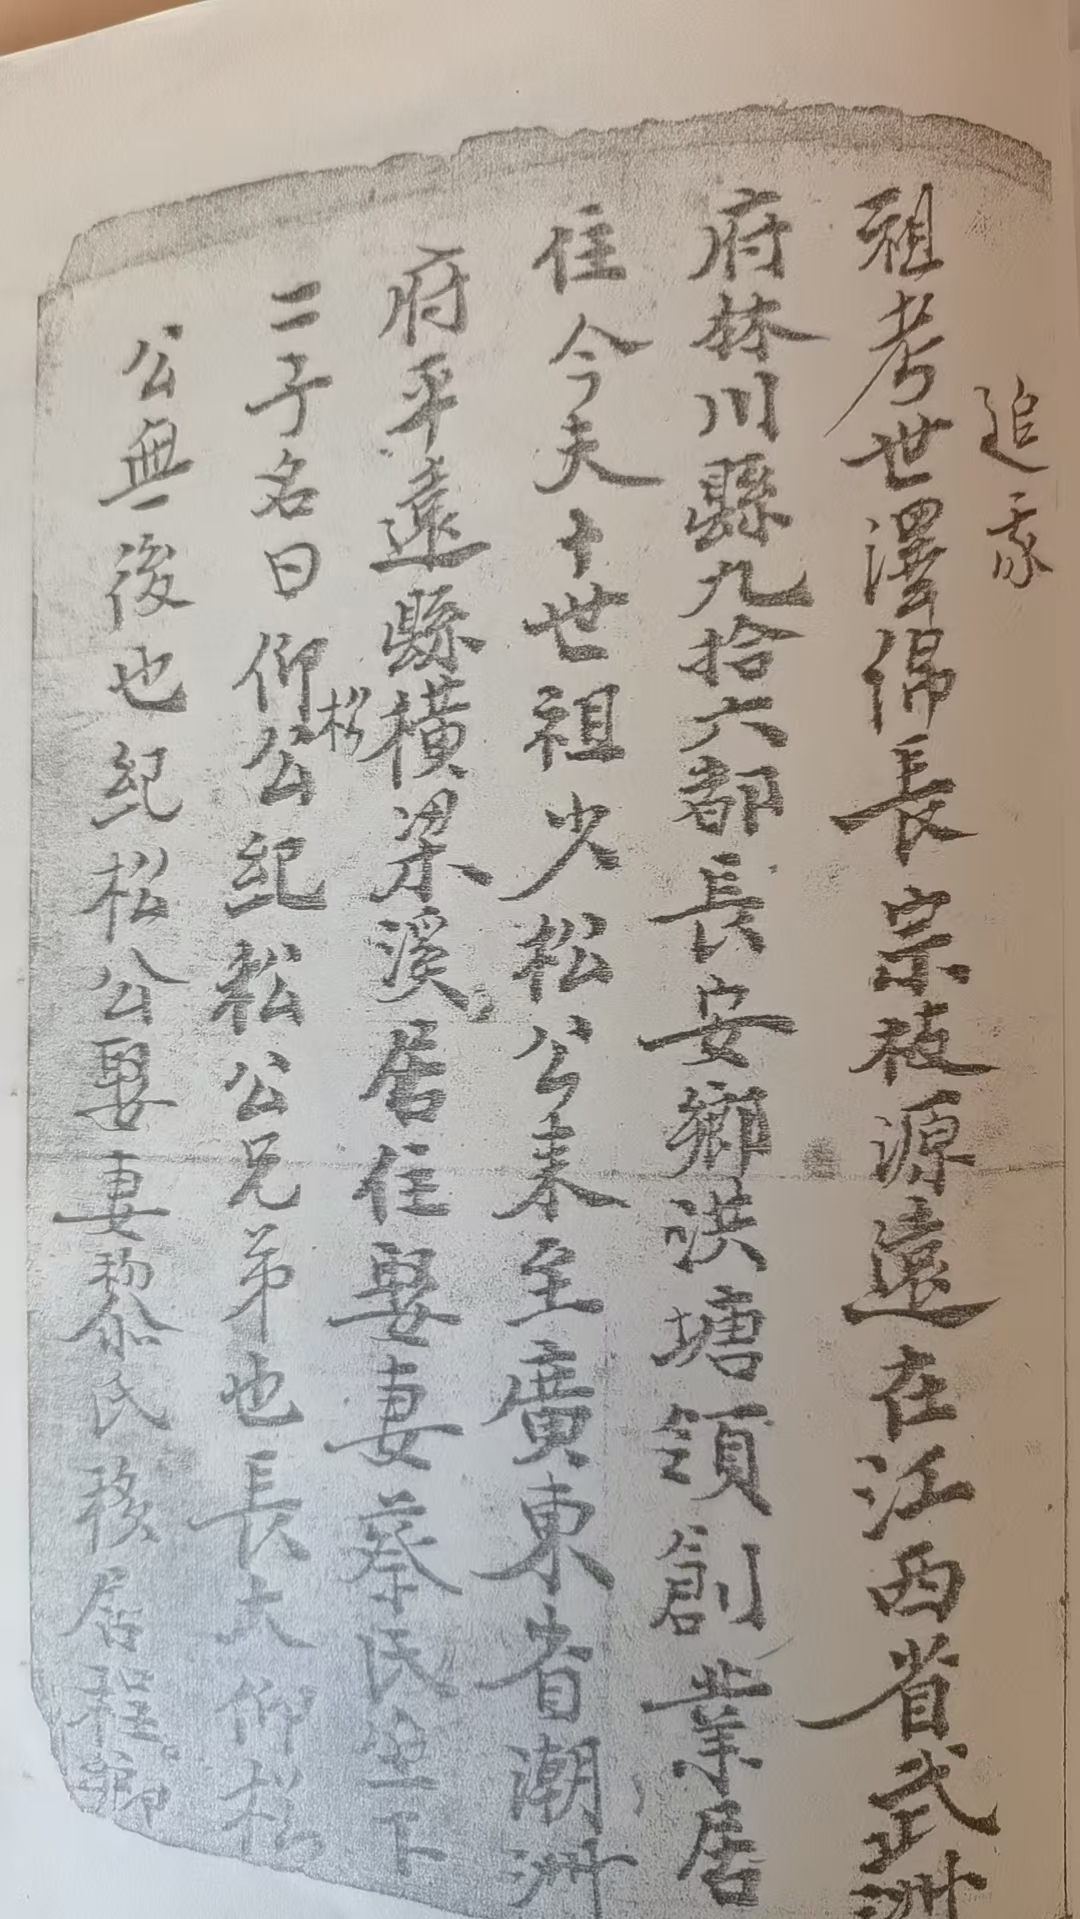 追
祖考世澤綿長宗枝源遠在江西省武洲
府林川縣九拾六都長安鄉洪塘領創業居
住今夫十世祖少松公来至廣東省潮洲
府平遠縣橫梁溪居住娶妻蔡氏坐下
二子名曰仰松公紀松公兄弟也長大仰松
公無後也紀松公娶妻氏移居程鄉